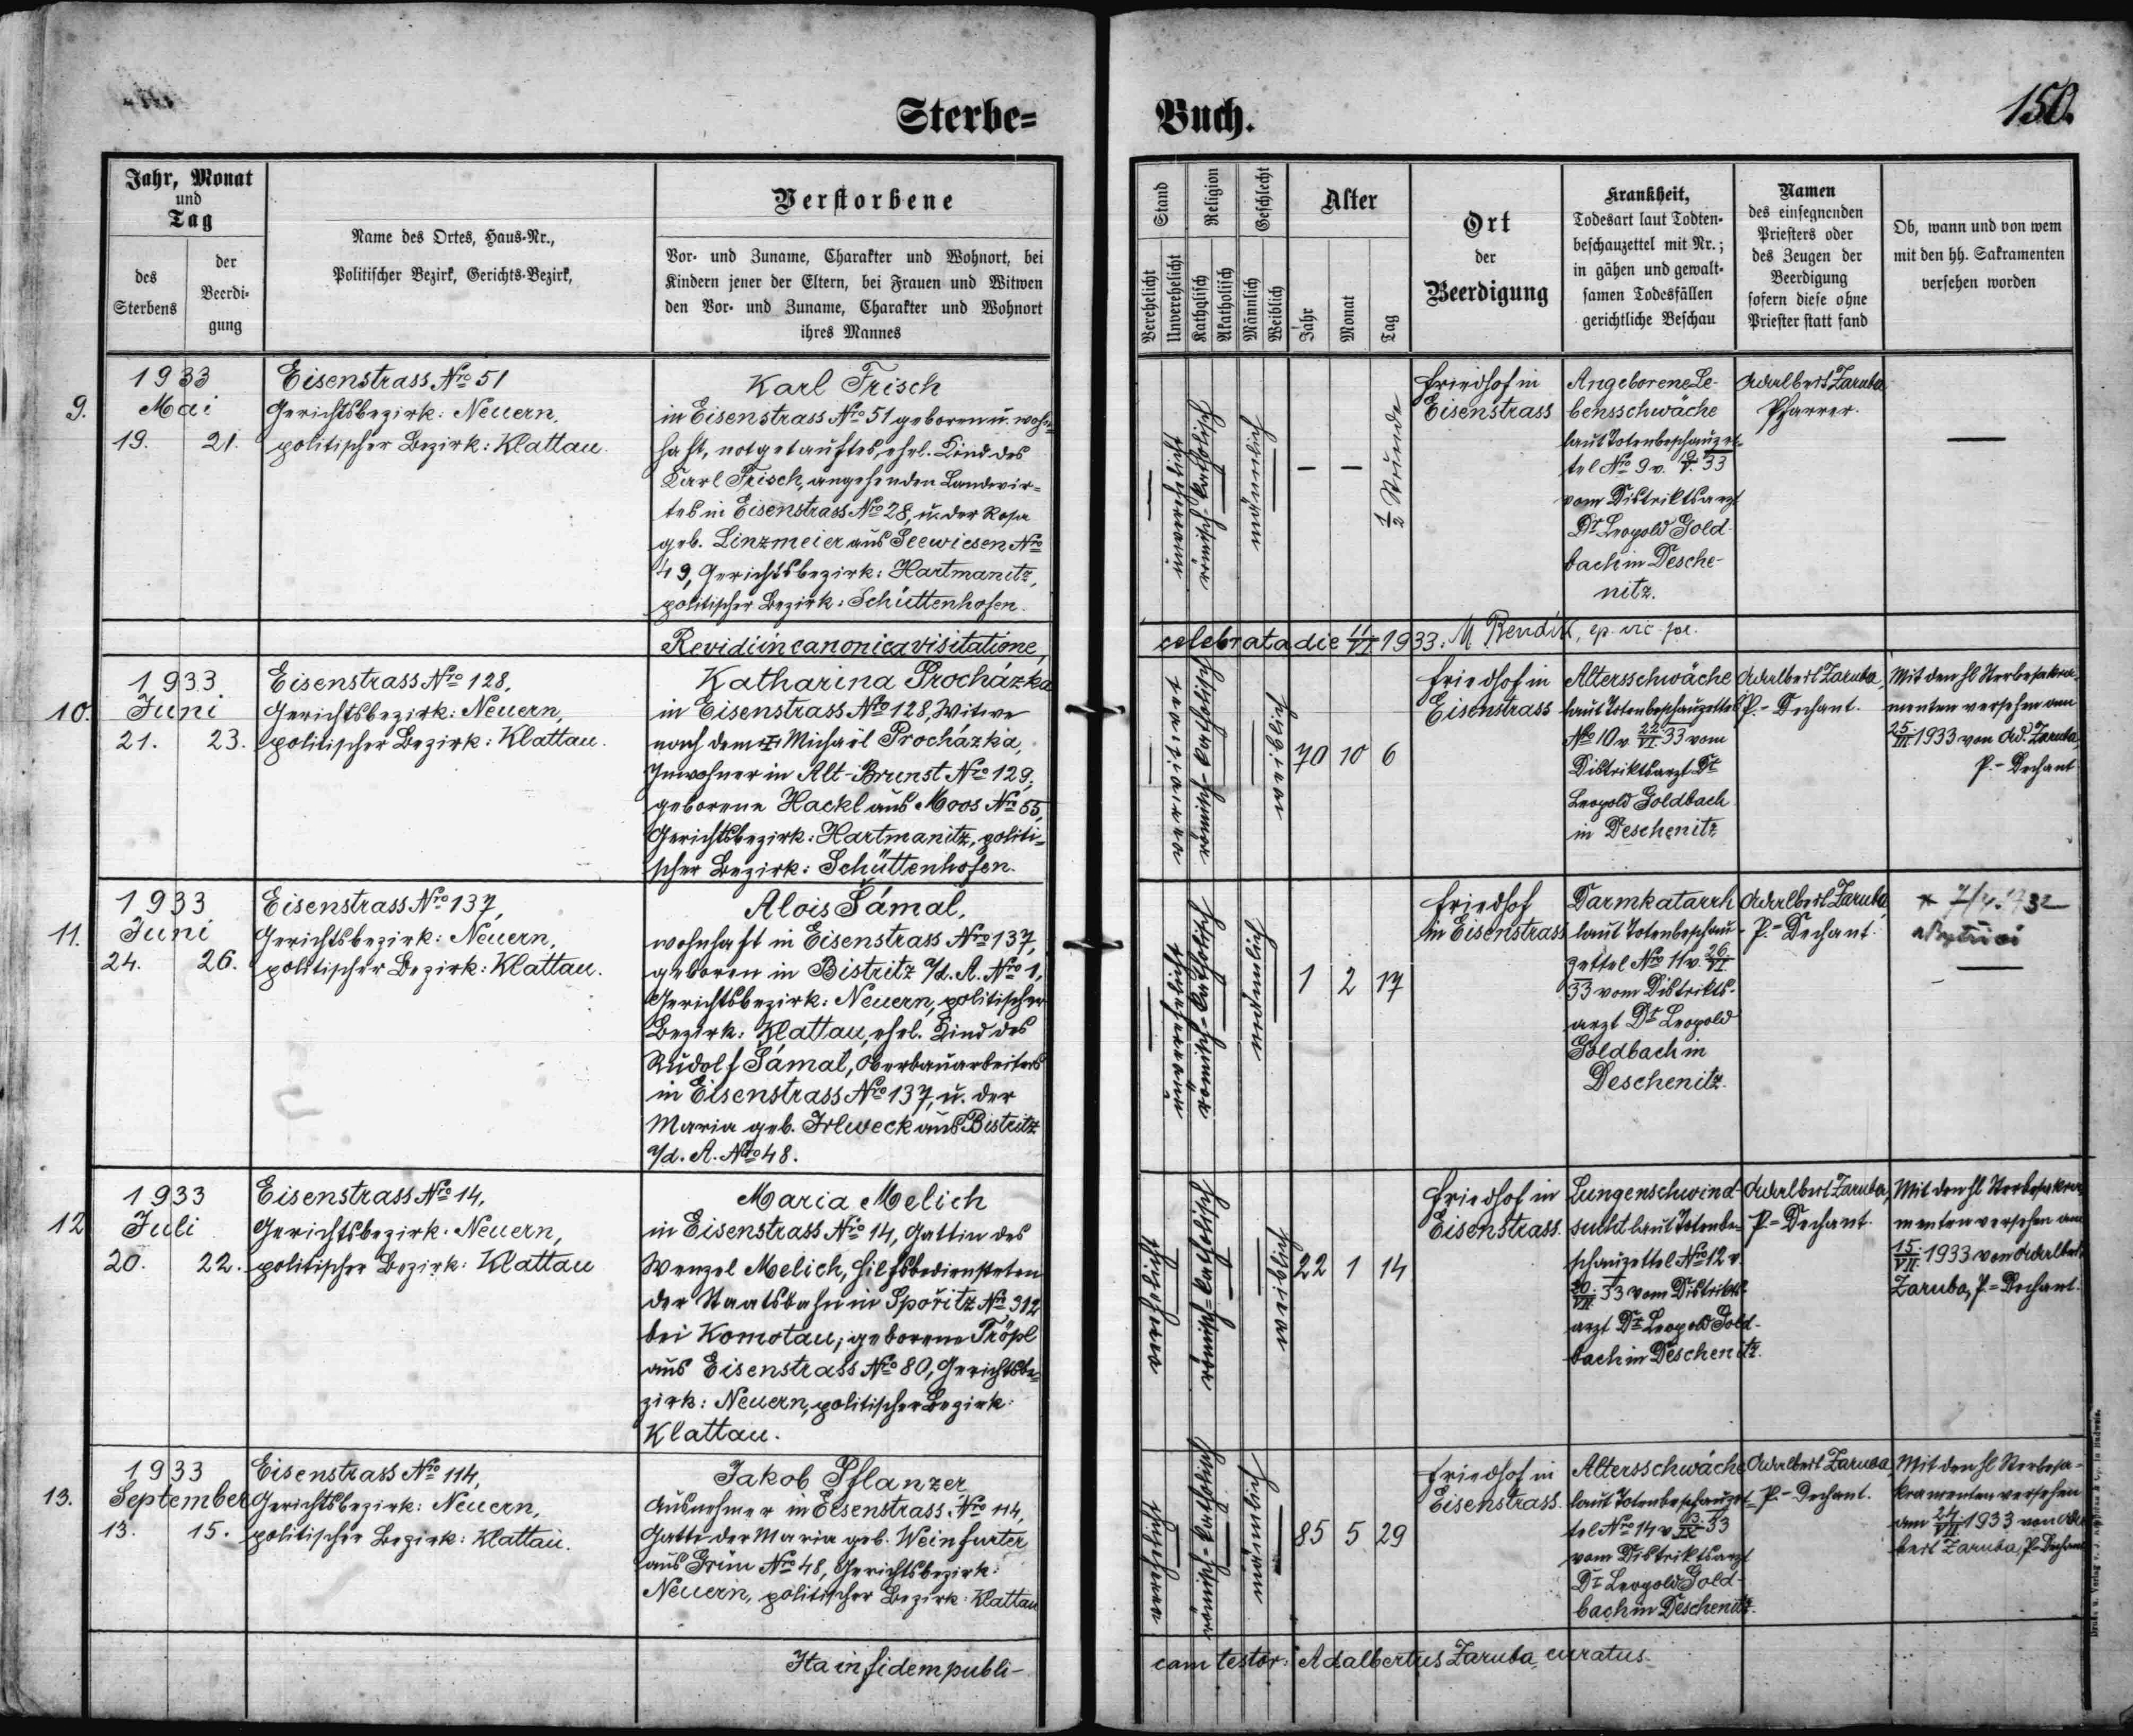 Sterbe= Buch.
150.
Jahr, Monat
und
Tag
des
Sterbens
der
Beerdi-
gung
Name des Ortes, Haus-Nr.,
Politischer Bezirk, Gerichts-Bezirk,
Verstorbene
Vor- und Zuname, Charakter und Wohnort, bei
Kindern jener der Eltern, bei Frauen und Witwen
den Vor- und Zuname, Charakter und Wohnort
ihres Mannes
Stand
Verehelicht
Unverehelicht
Religion
Katholisch
Akatholisch
Geschlecht
Männlich
Weiblich
Alter
Jahr
Monat
Tag
Ort
der
Beerdigung
Krankheit,
Todesart laut Todten-
beschauzettel mit Nr.;
in gähen und gewalt-
samen Todesfällen
gerichtliche Beschau
Namen
des einsegnenden
Priesters oder
des Zeugen der
Beerdigung
sofern diese ohne
Priester statt fand
Ob, wann und von wem
mit den hh. Sakramenten
versehen worden
9.
1933
Mai
19. 21.
Eisenstrass Nro 51
Gerichtsbezirk: Neuern,
politischer Bezirk: Klattau.
Karl Frisch
in Eisenstrass Nro 51 geboren u. wohn=
haft, notgetauftes, ehel. Kind des
Karl Frisch, angehenden Landwir=
tes in Eisenstrass Nro 28, u. der Rosa
geb. Linzmeier aus Seewiesen Nro
49, Gerichtsbezirk: Hartmanitz,
politischer Bezirk: Schüttenhofen.
unverehelicht
römisch-katholisch
männlich
— — 1/2 Stunde
Friedhof in
Eisenstrass
Angeborene Le-
bensschwäche
laut Totenbeschauzet-
tel Nro 9 v. 19./V. 33
vom Distriktsarzt
Dr Leopold Gold-
bach in Desche-
nitz.
Adalbert Zaruba
Pfarrer.
—
Revidi in canonica visitatione,
celebrata die 11/VI 1933. M Rendik, ep. vic.
10.
1933.
Juni
21. 23.
Eisenstrass Nro 128.
Gerichtsbezirk: Neuern,
politischer Bezirk: Klattau.
Katharina Procházka
in Eisenstrass Nro 128, Witwe
nach dem † Michael Procházka,
Inwohner in Alt-Brunst Nro 129,
geborene Hackl aus Moos Nro 55,
Gerichtsbezirk: Hartmanitz, politi=
scher Bezirk: Schüttenhofen.
verwitwet
römisch-katholisch
weiblich
70 10 6
Friedhof in
Eisenstrass
Altersschwäche
laut Totenbeschauzettel
Nro 10 v. 22/VI. 33 vom
Distriktsarzt Dr
Leopold Goldbach
in Deschenitz
Adalbert Zaruba,
P.-Dechant.
Mit den hl Sterbesakra-
menten versehen am
25/III. 1933 von Ad. Zaruba,
P.-Dechant
11.
1933
Juni
24. 26.
Eisenstrass Nro 137,
Gerichtsbezirk: Neuern,
politischer Bezirk: Klattau.
Alois Šámal,
wohnhaft in Eisenstrass Nro 137,
geboren in Bistritz a/d. A. Nro 1,
Gerichtsbezirk: Neuern, politischer
Bezirk: Klattau, ehel. Kind des
Rudolf Šámal, Oberbauarbeiters
in Eisenstrass Nro 137, u. der
Maria geb. Irlweck aus Bistritz
a/d. A. Nro 48.
unverehelicht
römisch-katholisch
männlich
1 2 17
Friedhof
in Eisenstrass
Darmkatarrh
laut Totenbeschau-
zettel Nro 11 v. 26/VI.
33 vom Distrikts-
arzt Dr Leopold
Goldbach in
Deschenitz.
Adalbert Zaruba
P.-Dechant.
—
12
1933
Juli
20. 22.
Eisenstrass Nro 14,
Gerichtsbezirk: Neuern,
politischer Bezirk: Klattau
Maria Melich
in Eisenstrass Nro 14, Gattin des
Wenzel Melich, Hilfsbediensteten
der Staatsbahn in Spořitz Nro 312
bei Komotau; geborene Tröpl
aus Eisenstrass Nro 80, Gerichtsbe=
zirk: Neuern, politischer Bezirk:
Klattau.
verehelicht
römisch-katholisch
weiblich
22 1 14
Friedhof in
Eisenstrass.
Lungenschwind-
sucht laut Totenbe-
schauzettel Nro 12 v.
20./VII. 33 vom Distrikts-
arzt Dr Leopold Gold-
bach in Deschenitz.
Adalbert Zaruba,
P.-Dechant.
Mit den hl Sterbesakra-
menten versehen am
15/VII. 1933 von Adalbert
Zaruba, P.-Dechant.
13.
1933
September
13. 15.
Eisenstrass Nro 114,
Gerichtsbezirk: Neuern,
politischer Bezirk: Klattau.
Jakob Pflanzer
Ausnehmer in Eisenstrass Nro 114,
Gatte der Maria geb. Weinfurter
aus Grün Nro 48, Gerichtsbezirk:
Neuern, politischer Bezirk: Klattau
verehelicht
römisch-katholisch
männlich
85 5 29
Friedhof in
Eisenstrass.
Altersschwäche
laut Totenbeschauzet=
tel Nro 14 v 13./IX 33
vom Distriktsarzt
Dr Leopold Gold-
bach in Deschenitz.
Adalbert Zaruba
P.-Dechant.
Mit den hl Sterbesa-
kramenten versehen
am 24./VII. 1933 von Adal
bert Zaruba, P.-Dechant
Ita in fidem publi-
cam testor: Adalbertus Zaruba, curatus.